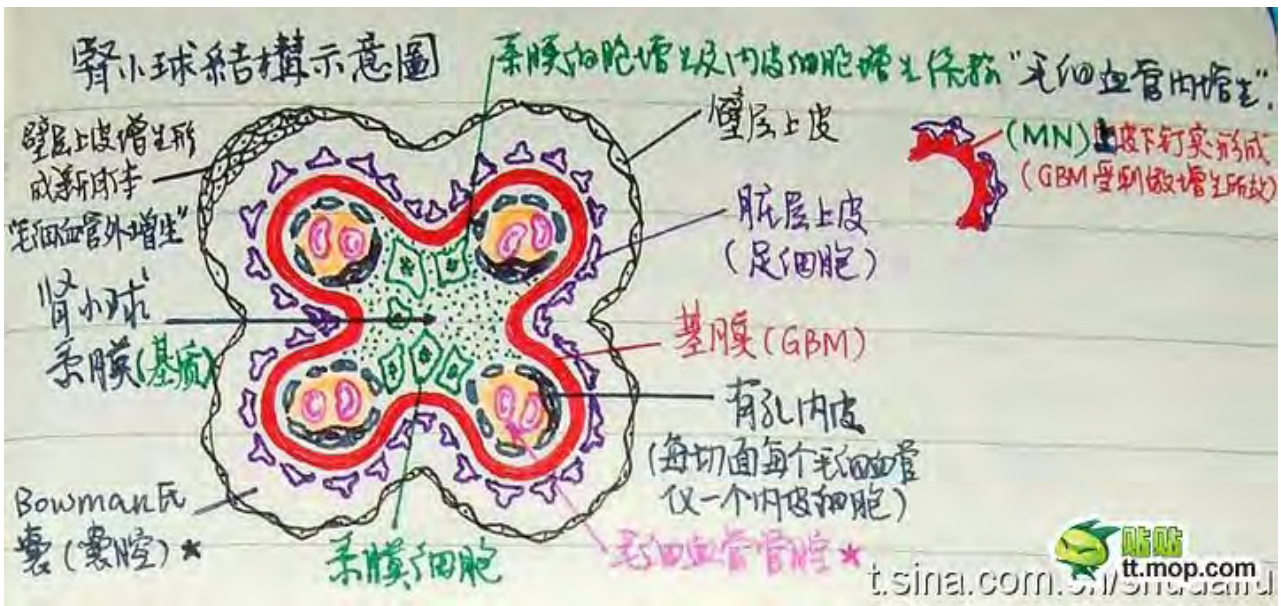 腎小球結構示意圖
系膜细胞增生及内皮细胞增生俗称"毛细血管内增生".
壁层上皮增生形
成新月体
"毛细血管外增生"
壁层上皮
(MN)上皮下钉突形成
(GBM受刺激增生所致)
脏层上皮
(足细胞)
肾小球
系膜(基质)
基膜(GBM)
有孔内皮
(每切面每个毛细血管
仅一个内皮细胞)
Bowman氏
囊(囊腔)★
系膜细胞
毛细血管管腔★
贴贴
tt.mop.com